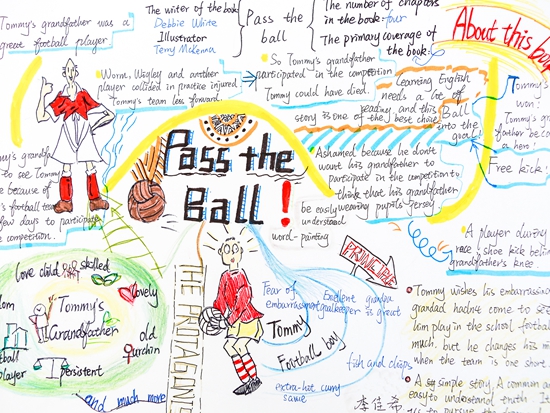 Tommy's grandfather was a
great football player
The writer of the book
Debbie White
Illustrator
Terry McKenna
Pass the
ball
The number of chapters
in the book: four
The primary coverage of
the book:
About this bo
Worm, Wigley and another
player collided in practice injured.
Tommy's team less forward.
So Tommy's grandfather
participated in the competition
Tommy could have died.
Learning English
needs a lot of
reading, and this
story is one of the best choice
Ball
into the
goal
Tommy's
won!
Tommy's
gra
father be co
a hero!
Free kick!
Tommy's grandfa
to see Tommy
because of
's football team
few days to participate
competition.
Pass the
Ball!
Ashamed because he don't
want his grandfather to
participate in the competition
think that his grandfather
wearing pupils jersey
be easily
understood
word-painting
A player during
race, shoe kick behind
grandfather's knee
love child
skilled
lovely
Tommy's
Grandfather
old
urchin
persistent
player
and much more
THE PROTAGONI
PRINCIPLE
Fear of
embarrassment
Exellent
goalkeeper
grandpa
is great
Tommy
Football boy
fish and chips
extra-hot curry
same
李佳希
Tommy wishes his embarrassing
grandad hadn't come to see
him play in the school footba
much. but he changes his mi
when the team is one short.
A simple story. A common an
easy to understand truth. I